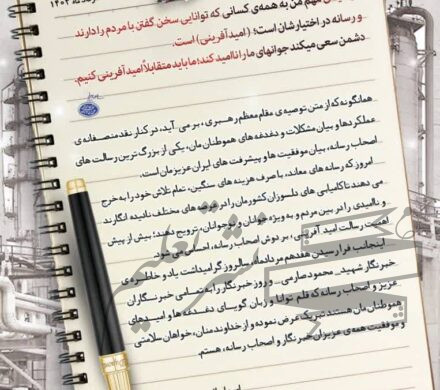 مهم من به همه‌ی کسانی که توانایی سخن گفتن با مردم را دارند
و رسانه در اختیارشان است؛ (امیدآفرینی) است.
دشمن سعی میکند جوانهای ما را ناامید کند؛ ما باید متقابلاً امیدآفرینی کنیم.
همانگونه که از متن توصیه‌ی مقام معظم رهبری، بر می آید، در کنار نقد منصفانه‌ی
عملکردها و بیان مشکلات و دغدغه های هموطنان مان، یکی از بزرگ ترین رسالت های
اصحاب رسانه، بیان موفقیت ها و پیشرفت های ایران عزیزمان است.
امروز که رسانه های معاند، با صرف هزینه های سنگین، تمام تلاش خود را به خرج
می دهند تا کامیابی های دلسوزان کشورمان را در عرصه های مختلف نادیده انگارند
و ناامیدی را در بین مردم و به ویژه جوانان و نوجوانان، ترویج دهند؛ بیش از پیش
اهمیت رسالت امید آفرینی، بر دوش اصحاب رسانه، احساس می شود.
اینجانب فرا رسیدن هفدهم مردادماه، سالروز گرامیداشت یاد و خاطره ی
خبرنگار شهید، محمود صارمی، و روز خبرنگار را به تمامی خبرنگاران
عزیز و اصحاب رسانه که قلم توانا و زبان گویای دغدغه ها و امیدهای
هموطنان مان هستند تبریک عرض نموده و از خداوند منان، خواهان سلامتی
و موفقیت همه ی عزیزان خبرنگار و اصحاب رسانه، هستم.